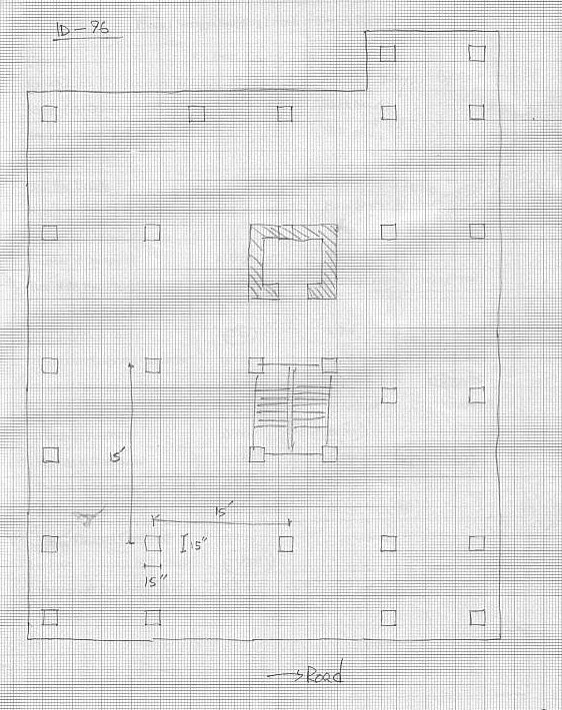 ID-96
15'
15'
15"
15"
→Road